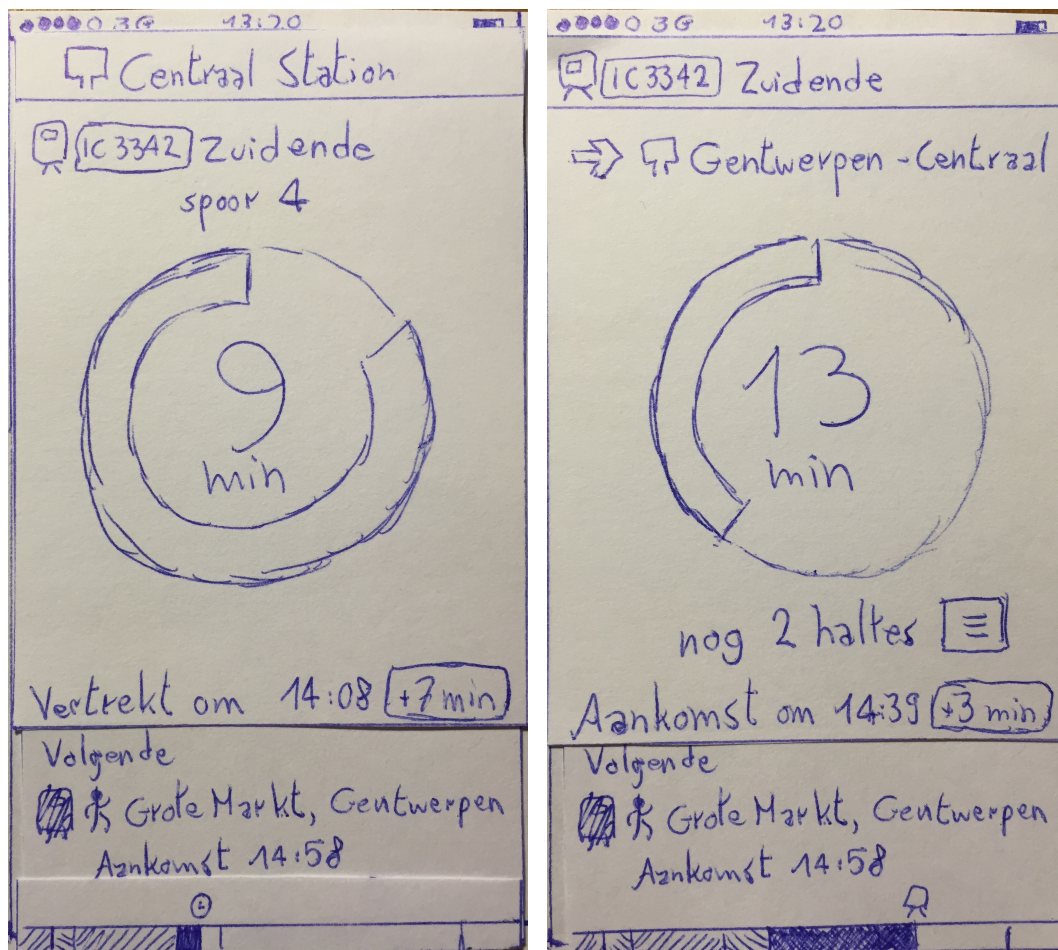 3G 13:20
Centraal Station
IC 3342 Zuidende
spoor 4
9
min
Vertrekt om 14:08 +7 min
Volgende
Grote Markt, Gentwerpen
Aankomst 14:58
3G 13:20
IC 3342 Zuidende
Gentwerpen - Centraal
13
min
nog 2 haltes
Aankomst om 14:39 +3 min
Volgende
Grote Markt, Gentwerpen
Aankomst 14:58